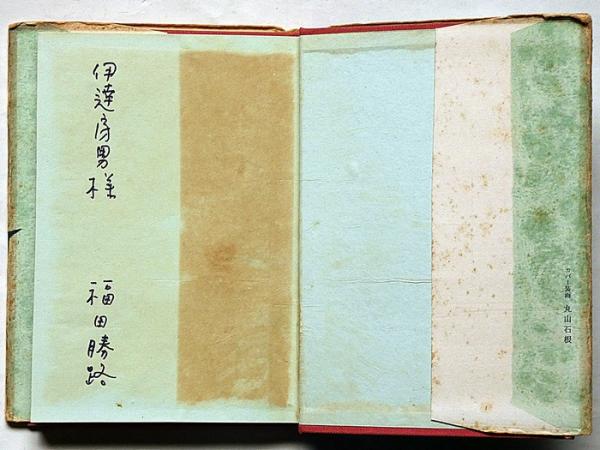 伊達房男様
福田勝路
カバー装画 丸山石根